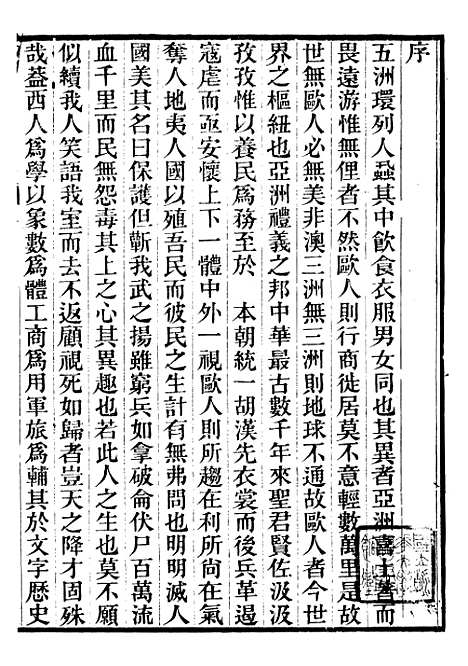 序
五洲環列人蝨其中飲食衣服男女同也其異者亞洲喜土著而
畏遠游惟無俚者不然歐人則行商徙居莫不意輕數萬里是故
世無歐人必無美非澳三洲無三洲則地球不通故歐人者今世
界之樞紐也亞洲禮義之邦中華最古數千年來聖君賢佐汲汲
孜孜惟以養民爲務至於 本朝統一胡漢先衣裳而後兵革遏
寇虐而亟安懷上下一體中外一視歐人則所趨在利所尚在氣
奪人地夷人國以殖吾民而彼民之生計有無弗問也明明滅人
國美其名曰保護但蘄我武之揚雖窮兵如拿破侖伏尸百萬流
血千里而民無怨毒其上之心其異趣也若此人之生也莫不願
似續我人笑語我室而去不返顧視死如歸者豈天之降才固殊
哉蓋西人爲學以象數爲體工商爲用軍旅爲輔其於文字歷史